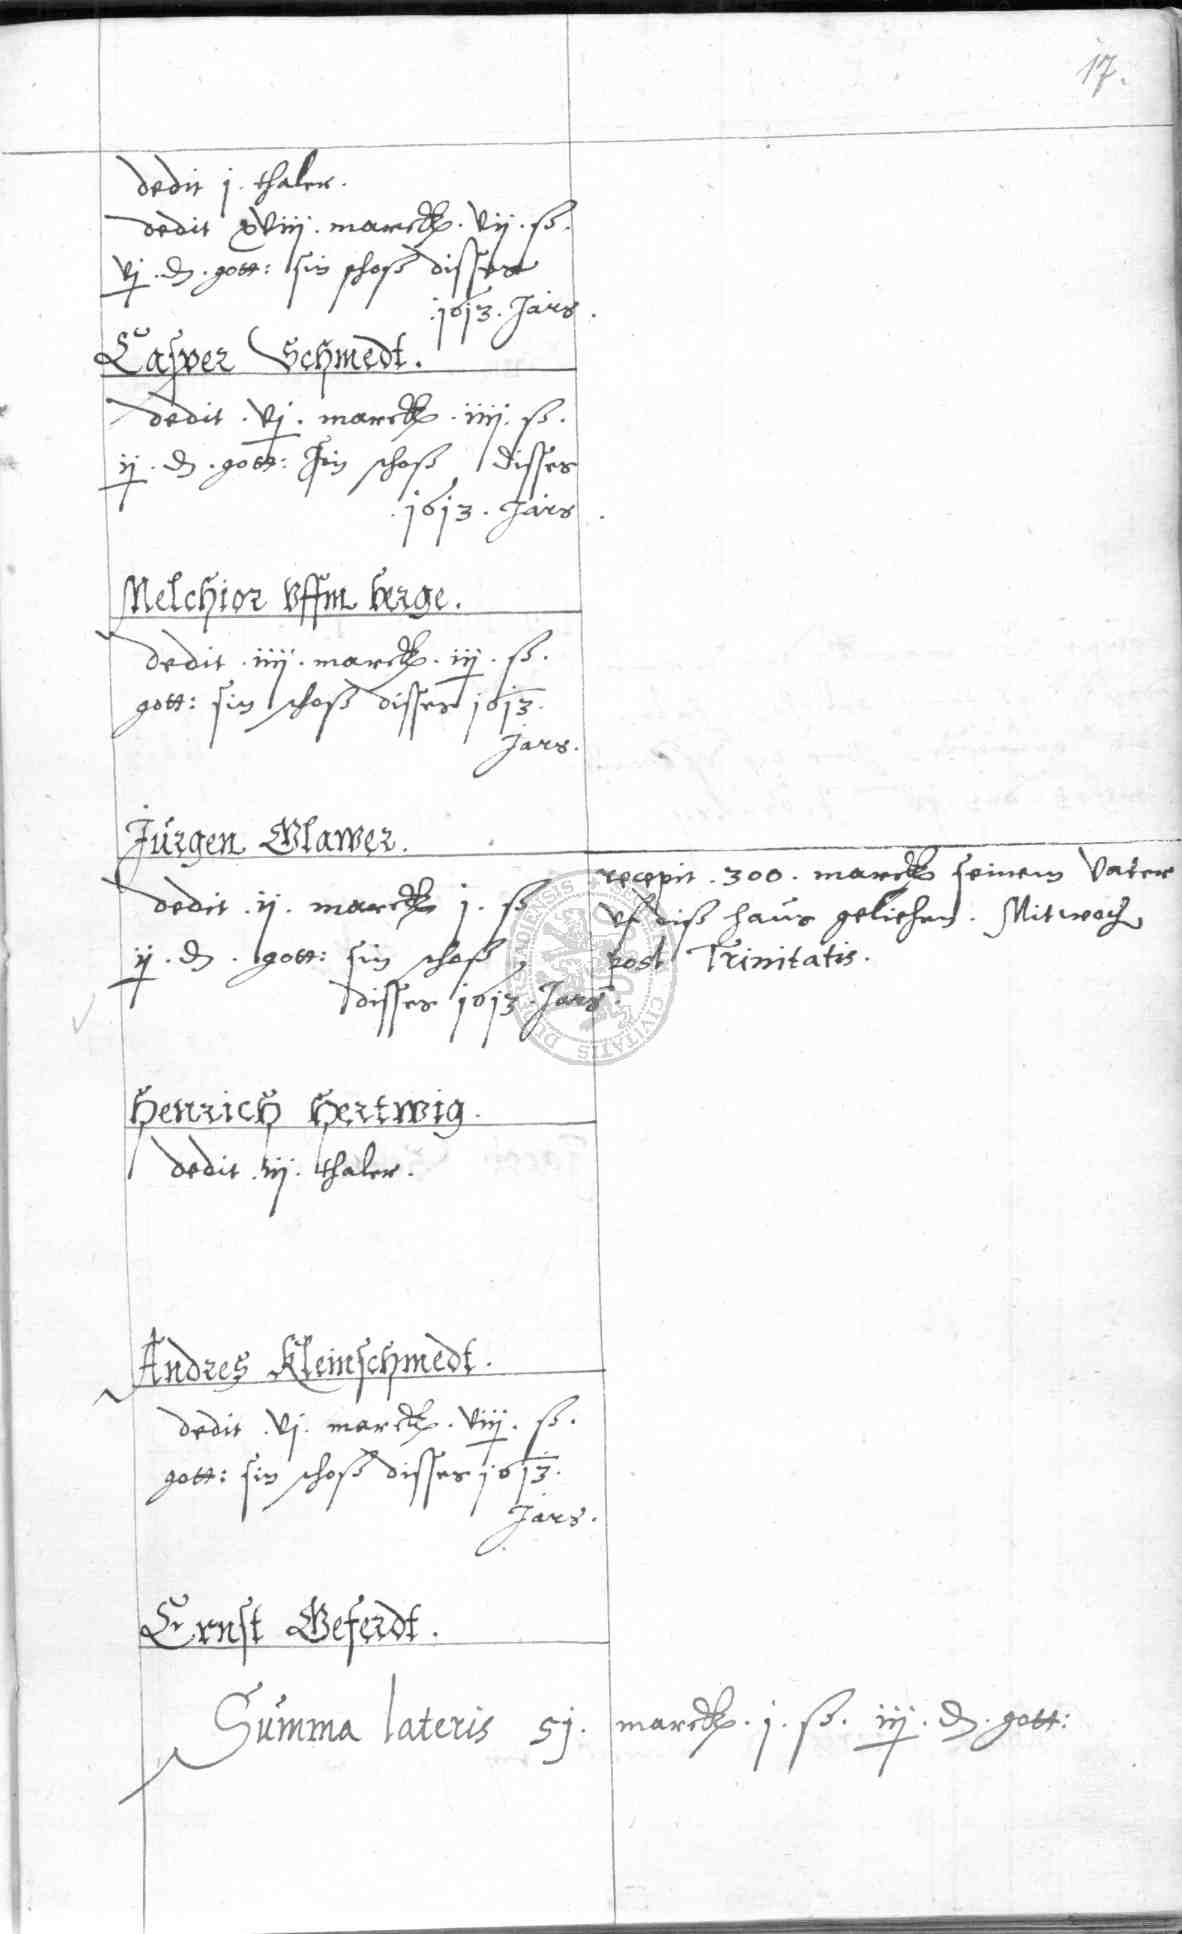 17.
dedit j. thaler.
dedit xviij. marck. vij. ß.
vj. d. gott: sin schoß disses
.1613. Jars.
Casper Schmedt.
dedit. vj. marck. iiij. ß.
ij. d. gott: sin schoß disses
.1613. Jars.
Melchior Uffm berge.
dedit. iiij. marck. iij. ß.
gott: sin schoß disses 1613.
Jars.
Jürgen Glawer.
dedit. ij. marck j. ß
ij. d. gott: sin schoß
disses 1613. Jars.
recepit. 300. marck seinem Vater
uf diß haus geliehen. Mitwoch
post Trinitatis.
SIGILLUM CIVITATIS DUDERSTADIENSIS
Henrich Hertwig.
dedit. iij. thaler.
Andres Kleinschmedt.
dedit. vj. marck. viij. ß.
gott: sin schoß disses 1613.
Jars.
Ernst Geferdt.
Summa lateris 5j. marck. j. ß. iij. d. gott: